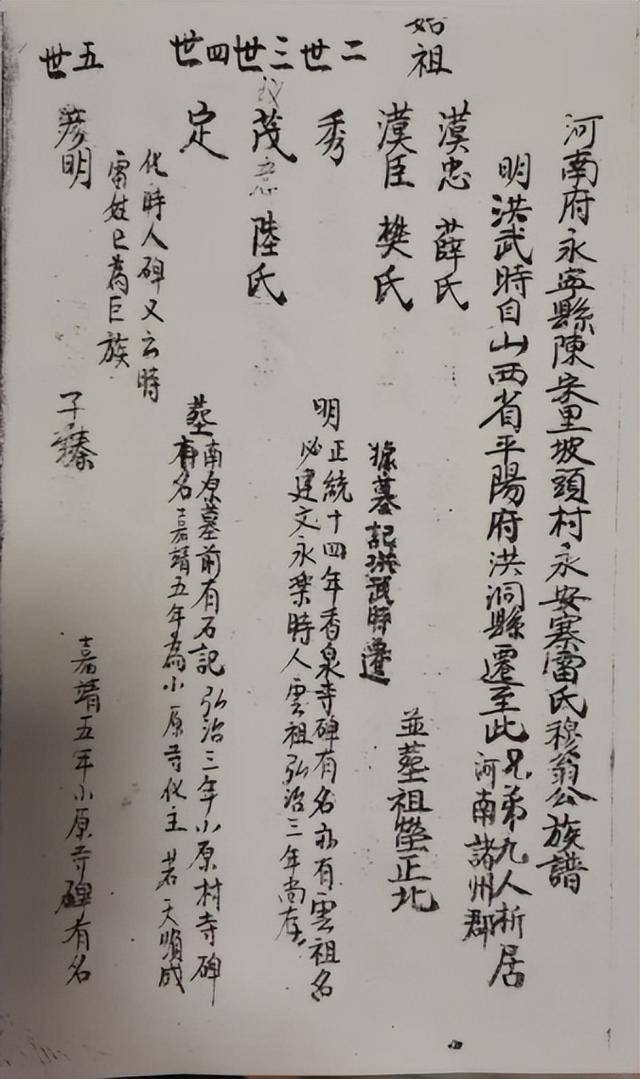 河南府永寧縣陳宋里坡頭村永安寨雷氏穆翁公族譜
明洪武時自山西省平陽府洪洞縣遷至此兄弟九人析居
河南諸州郡
始祖
漠忠 薛氏
漠臣 樊氏
並塟祖塋正北
據墓記洪武時遷
二世
秀
明正統十四年香泉寺碑有名亦有雲祖名
必建文永樂時人雲祖弘治三年尚存
三世
茂 陸氏
四世
定
塟南原墓前有石記弘治三年小原村寺碑
有名嘉靖五年為小原寺化主若天順成
化時人碑又云時
雷姓已為巨族
五世
彦明
子臻
嘉靖五年小原寺碑有名